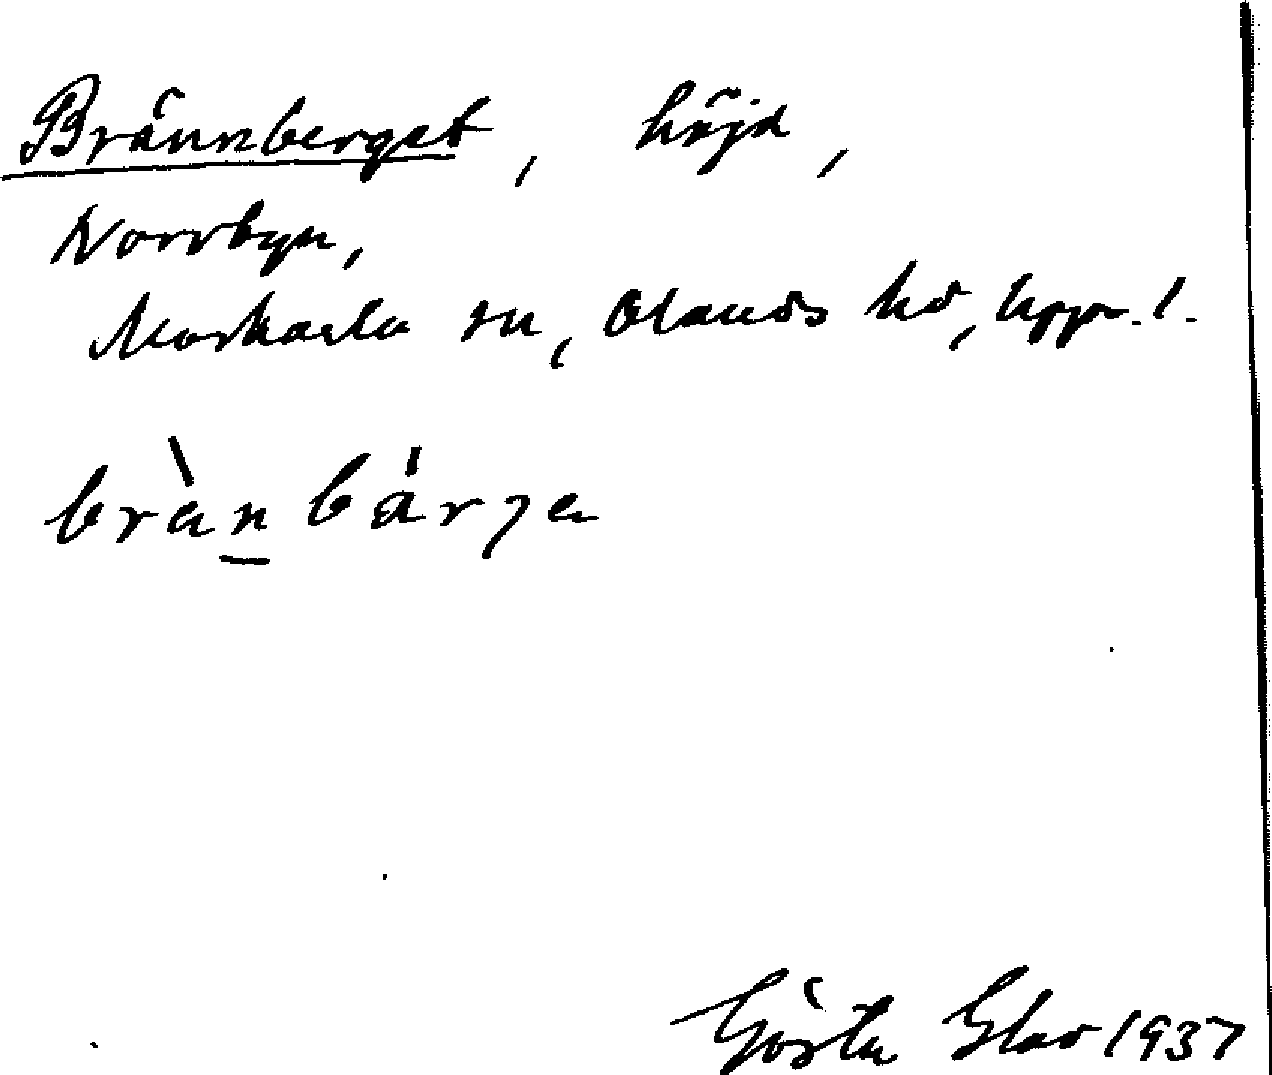 Brännberget, höjd,
Norrbyn,
Morkarla sn, Olands hd, Uppl.
brànbárje
Gösta Glad 1937